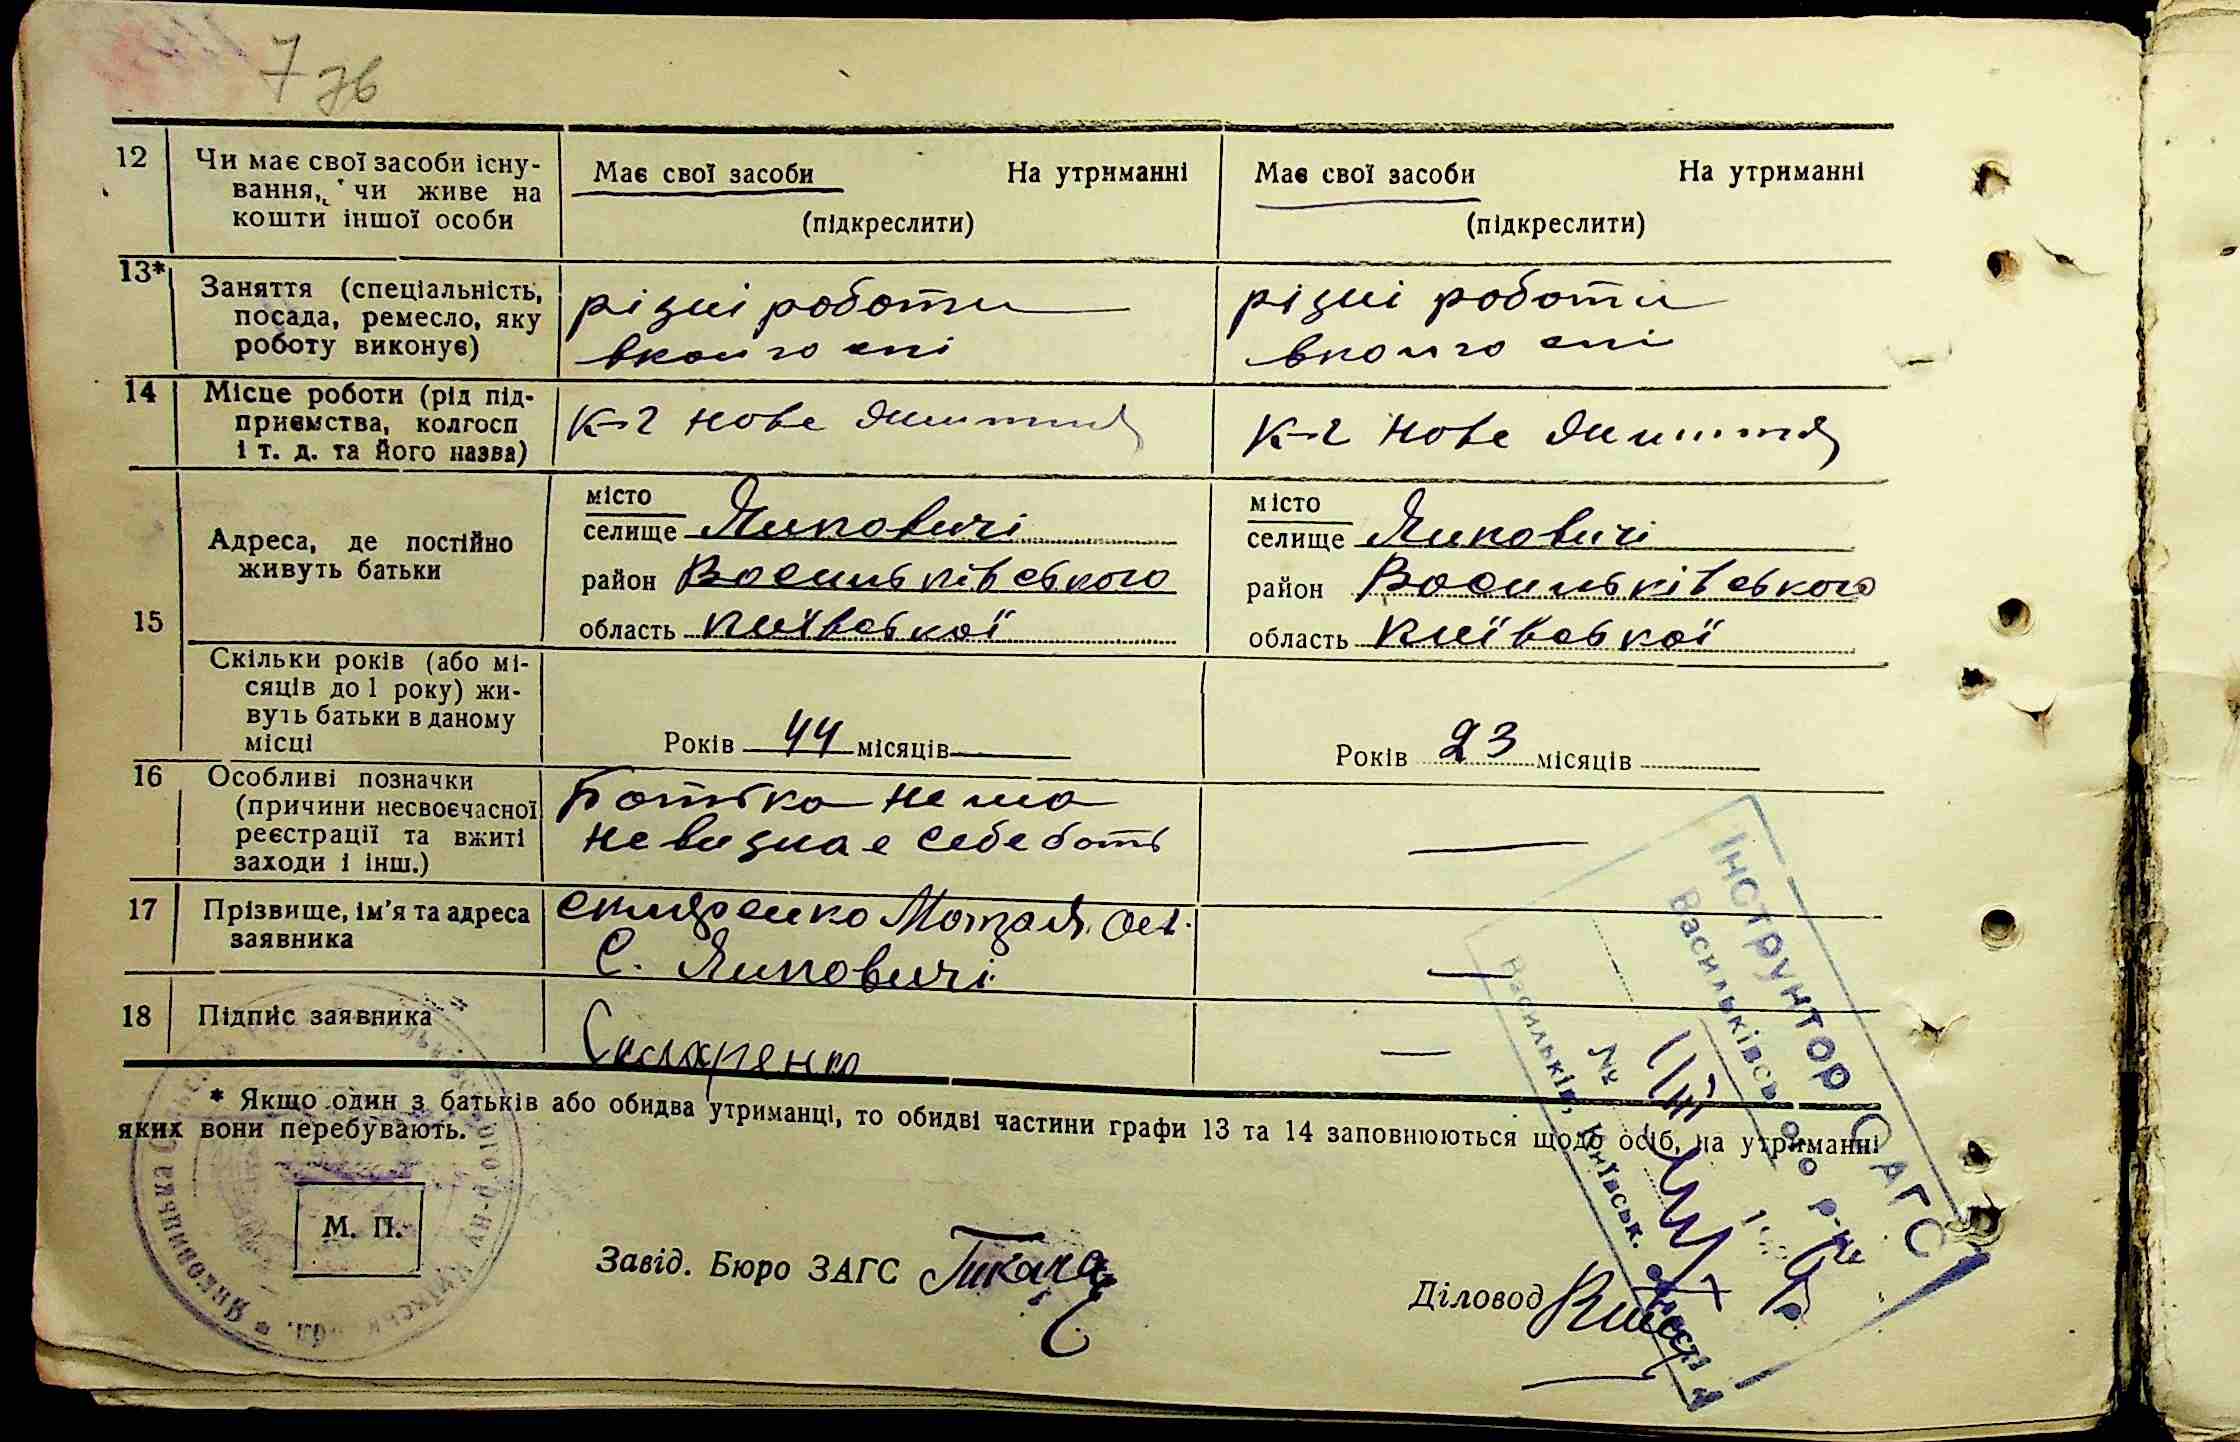 7 зв
12 Чи має свої засоби існу-
вання, чи живе на
кошти іншої особи
Має свої засоби На утриманні
(підкреслити)
Має свої засоби На утриманні
(підкреслити)
13* Заняття (спеціальність,
посада, ремесло, яку
роботу виконує)
різні роботи
в колгоспі
різні роботи
в колгоспі
14 Місце роботи (рід під-
приємства, колгосп
і т. д. та його назва)
К-г Нове життя
К-г Нове життя
15 Адреса, де постійно
живуть батьки
місто
селище Яцковичі
район Васильківського
область Київської
місто
селище Яцковичі
район Васильківського
область Київської
Скільки років (або мі-
сяців до 1 року) жи-
вуть батьки в даному
місці
Років 44 місяців
Років 23 місяців
16 Особливі позначки
(причини несвоєчасної
реєстрації та вжиті
заходи і інш.)
Батька нема
не визнає себе бать
—
17 Прізвище, ім'я та адреса
заявника
Мотря
С. Яцковичі
—
18 Підпис заявника
—
* Якщо один з батьків або обидва утриманці, то обидві частини графи 13 та 14 заповнюються щодо осіб, на утриманні
яких вони перебувають.
М. П.
Завід. Бюро ЗАГС
Діловод
Інструктор ЗАГС
Васильківського р-ну
№
Васильків, Київськ. області